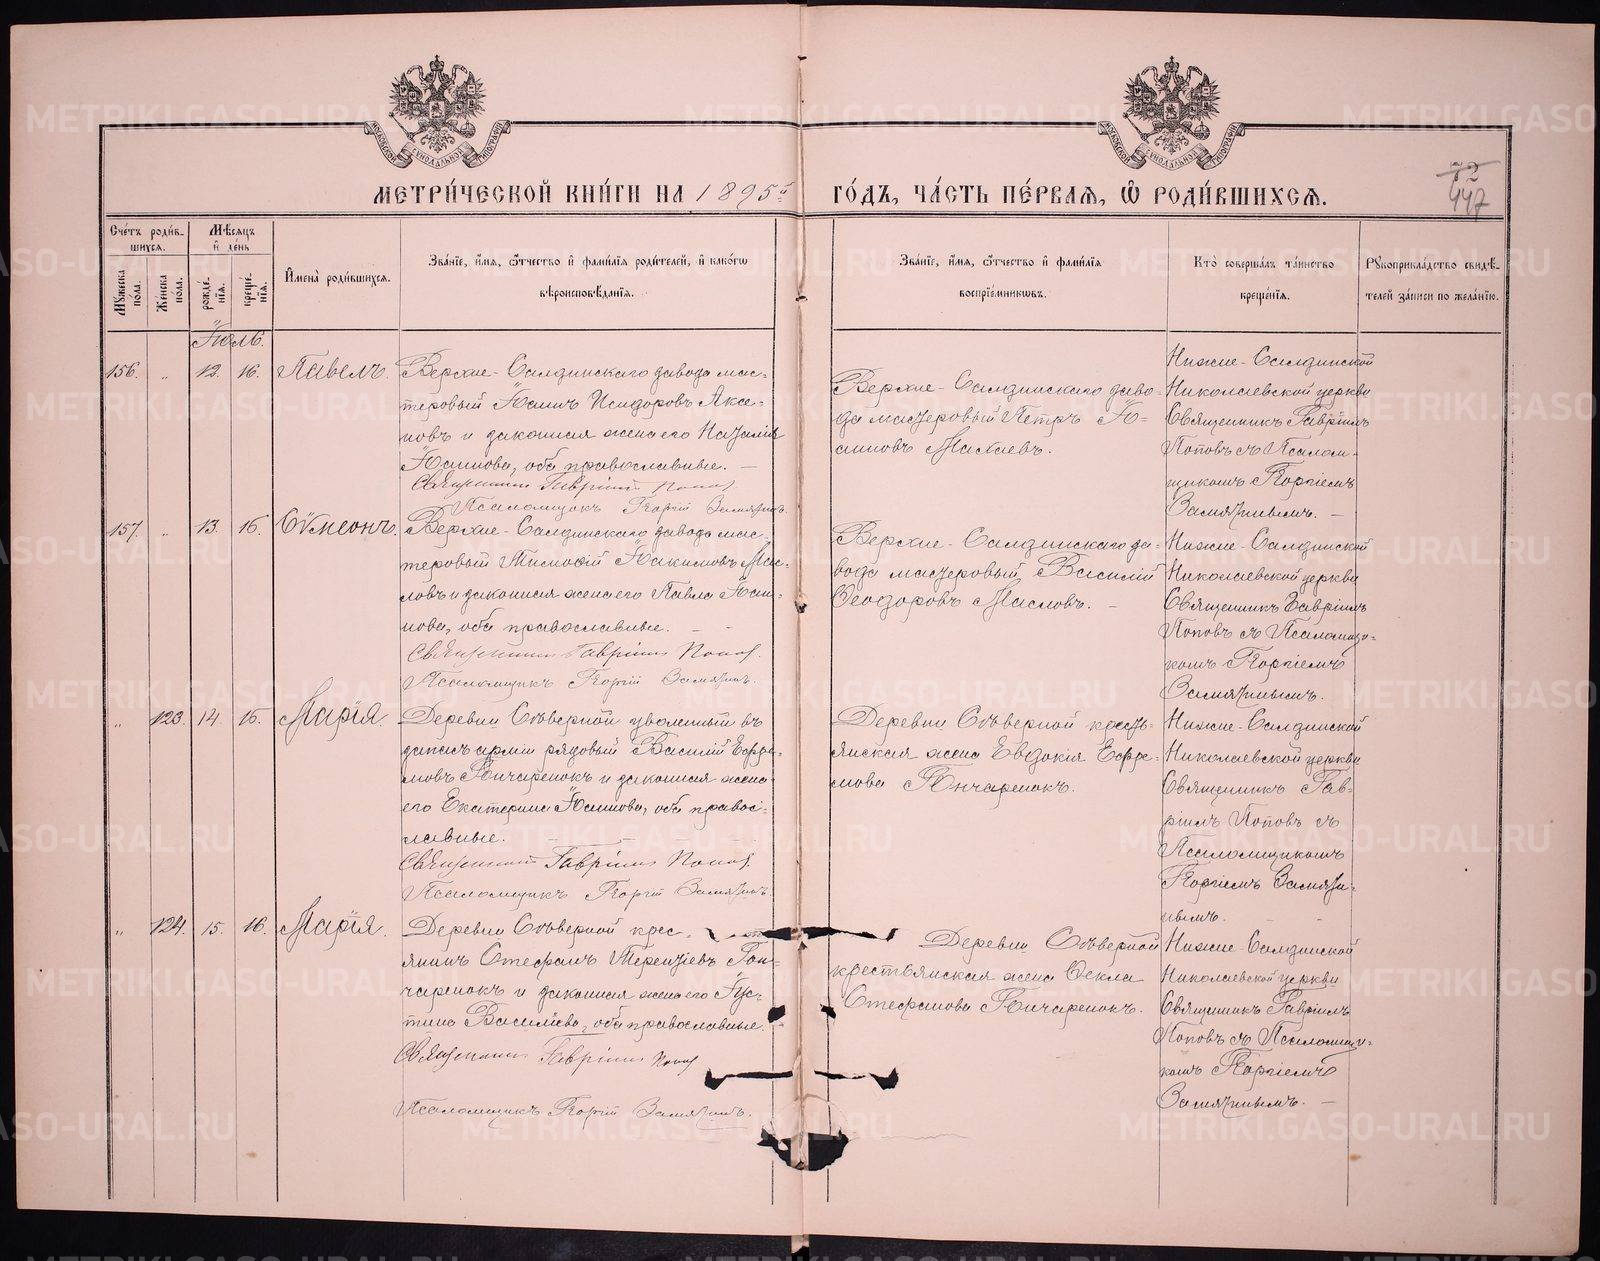 МЕТРИ́ЧЕСКОЙ КНИ́ГИ НА 1895й ГО́ДЪ, ЧА́СТЬ ПЕ́РВАѦ, Ѿ РОДИ́ВШИХСѦ.
72
447
Сче́тъ роди́в-
шихсѧ.
Мѣ́сѧцъ
и҆ де́нь
Мꙋ́жеска по́ла.
Же́нска по́ла.
рожде́-
нїѧ.
креще́-
нїѧ.
И҆мена̀ роди́вшихсѧ.
Зва́нїе, и҆́мѧ, ѻ҆́тчество и҆ фами́лїѧ роди́телей, и҆ како́гѡ
вѣроисповѣ́данїѧ.
Зва́нїе, и҆́мѧ, ѻ҆́тчество и҆ фами́лїѧ
воспрїе́мникѡвъ.
Кто̀ соверша́лъ та́инство
креще́нїѧ.
Рꙋкоприкла́дство свидѣ́-
телей за́писи по жела́нїю.
Іюль.
156. „ 12. 16. Павелъ.
Верхне-Салдинскаго завода мас-
теровый Іоаннъ Исидоровъ Акси-
новъ и законная жена его Наталія
Іоаннова, оба православные. —
Священникъ Гавріилъ Попов
Псаломщикъ Георгій Замятинъ.
Верхне-Салдинскаго заво-
да мастеровый Петръ Іо-
анновъ Малаевъ.
Нижне-Салдинской
Николаевской церкви
Священникъ Гавріилъ
Поповъ съ Псалом-
щикомъ Георгіемъ
Замятинымъ. —
157. „ 13. 16. Сѵмеонъ.
Верхне-Салдинскаго завода мас-
теровый Тимофій Іоакимовъ Мас-
ловъ и законная жена его Павла Іоан-
нова, оба православные. — —
Священникъ Гавріилъ Попов.
Псаломщикъ Георгій Замятинъ.
Верхне-Салдинскаго за-
вода мастеровый Василій
Ѳеодоровъ Масловъ. —
Нижне-Салдинской
Николаевской церкви
Священникъ Гавріилъ
Поповъ съ Псаломщи-
комъ Георгіемъ
Замятинымъ.
„ 123. 14. 15. Марія.
Деревни Сѣверной уволенный въ
запасъ арміи рядовый Василій Ефре-
мовъ Гончаренокъ и законная жена
его Екатерина Іоаннова, оба правос-
лавные. — — —
Священникъ Гавріилъ Попов.
Псаломщикъ Георгій Замятинъ.
Деревни Сѣверной кресть-
янская жена Евдокія Ефре-
мова Гончаренокъ.
Нижне-Салдинской
Николаевской церкви
Священникъ Гав-
ріилъ Поповъ съ
Псаломщикомъ
Георгіемъ Замяти-
нымъ. — —
„ 124. 15. 16. Марія.
Деревни Сѣверной крес
янинъ Стефанъ Терентіевъ Гон-
чаренокъ и законная жена его Іус-
тина Васильева, оба православные.
Священникъ Гавріилъ Попов
Псаломщикъ Георгій Замятинъ.
Деревни Сѣверной
крестьянская жена Ѳекла
Стефанова Гончаренокъ.
Нижне-Салдинской
Николаевской церкви
Священникъ Гавріилъ
Поповъ съ Псаломщи-
комъ Георгіемъ
Замятинымъ. —
METRIKI.GASO-URAL.RU